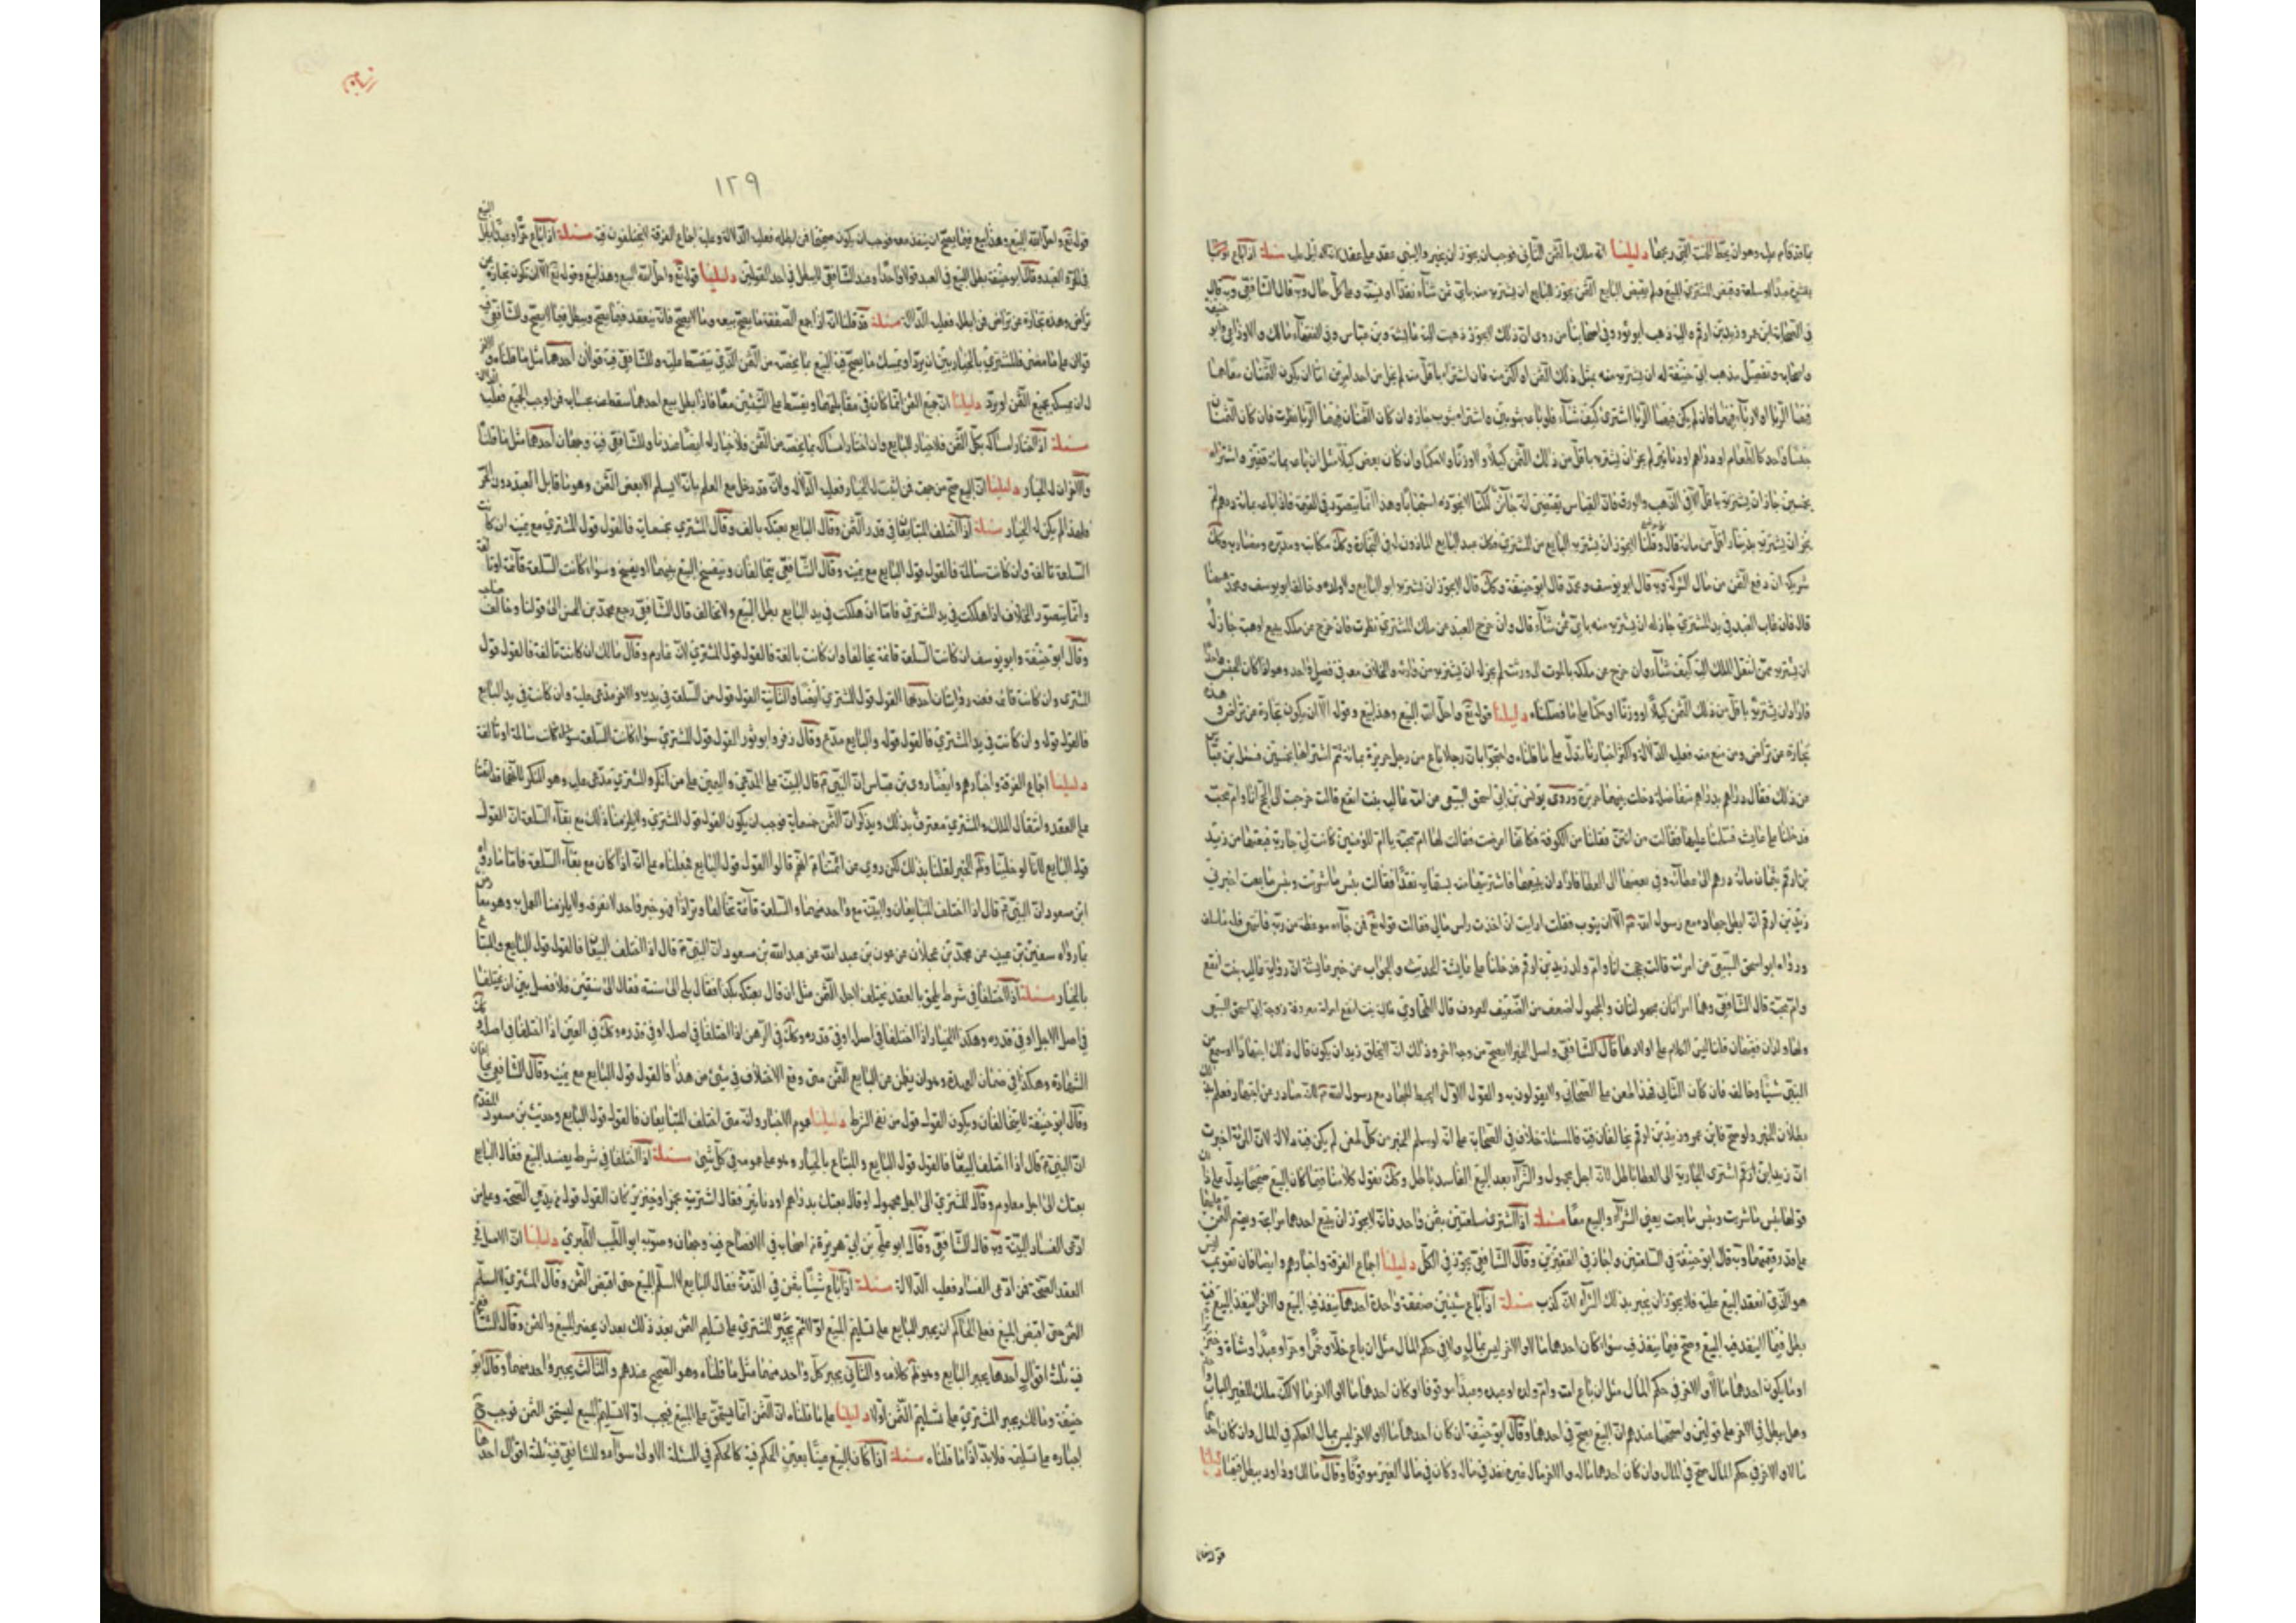 ما قد قام عليه وهو ان يحط الثمن الذي ربحها دليلنا انه ملك بالثمن الثاني فوجب ان يجوز ان يخبر والبيع عقد على عقد كان الدليل عليه مسئلة اذا باع
سلعة وقبض المشتري المبيع ولم يقبض البايع الثمن يجوز للبايع ان يشتريه منه باي ثمن شاء نقدا او نسية وعلى كل حال وبه قال الشافعي
في الصحابة ابن عمر وزيد بن ارقم واليه ذهب ابو ثور وفي اصحابنا من روى ان ذلك لا يجوز ذهبت اليه عايشة وبن عباس وفي الفقهاء مالك والاوزاعي وابو
واصحابه وتفصيل مذهب ابي حنيفة له ان يشتريه منه بمثل ذلك الثمن او اكثر منه فان اشتراه باقل منه لم يخل من احد امرين اما ان يكون الثمنان معا مما
فيهما الربا او لا ربا فيهما فان لم يكن فيهما الربا اشترى كيف شاء فلو باعه بثوبين واشتراه بثوب جاز وان كان الثمنان فيهما الربا نظرت فان كان الثمنان
جنسا واحدا كالطعام او دراهم او دنانير لم يجز ان يشتريه باقل من ذلك الثمن كيلا ولا وزنا ولا حكما وان كان بعض كيلا مثل ان باعه بمائة قفيز واشتراه
بخمسين جاز ان يشتريه باقل الا في الذهب والورق فان القياس يقتضي انه جائز لكنا لا نجوزه استحبابا وهذا انما يتصور في القيمة فاذا باعه بمائة درهم لم
يجز ان يشتريه بدينار اقل من مائة قال وقلنا لا يجوز ان يشتريه البايع من المشتري فكذلك عبد البايع الماذون له في التجارة وكذلك مكاتبه ومدبره ومضاربه وكذلك
شريكه ان دفع الثمن من مال الشركة وبه قال ابو يوسف ومحمد قال ابو حنيفة وكذلك قال لا يجوز ان يشتريه ابو البايع ولا ولده وخالفه ابو يوسف ومحمد
قال فان غاب العبد في يد المشتري جاز له ان يشتريه منه باي ثمن شاء قال وان خرج العبد من ملك المشتري نظرت فان خرج من ملكه ببيع او هبة جاز له
ان يشتريه ممن انتقل الملك اليه كيف شاء وان خرج من ملكه بالموت الى ورثته لم يجز له ان يشتريه من وارثه والخلاف معه في فصل واحد وهو اذا كان الجنس واحدا
فاراد ان يشتريه باقل من ذلك الثمن كيلا او وزنا او حكما على ما فصلناه دليلنا قوله تع واحل الله البيع وهذا بيع وقوله الا ان يكون تجارة عن تراض
تجارة عن تراض ومن منع منه فعليه الدلالة واكثر اخبارنا تدل على ما قلناه واحتجوا بان رجلا باع من رجل حريرة بمائة ثم اشتراها بخمسين فسئل بن عباس
عن ذلك فقال دراهم بدراهم متفاضلة دخلت بينهما حريرة وروى يونس بن ابي اسحق السبيعي عن امه عالية بنت ايفع قالت خرجت الى الحج انا وام محبة
فدخلنا على عايشة فسلمنا عليها فقالت من انتن فقلنا من الكوفة فكانها اعرضت فقالت لها ام محبة يا ام المؤمنين كانت لي جارية فبعتها من زيد
بن ارقم بثمان مائة درهم الى عطائه وفي بعضها الى العطا فاراد ان يبيعها فاشتريتها منه بستمائة نقدا فقالت بئس ما شريت وبئس ما بعت اخبري
زيد بن ارقم انه ابطل جهاده مع رسول الله ص الا ان يتوب فقلت ارايت ان اخذت راس مالي فقالت قوله تع فمن جاءه موعظة من ربه فانتهى فله ما سلف
ورواه ابو اسحق السبيعي عن امراته قالت حججت انا وام ولد زيد بن ارقم فدخلنا على عايشة الحديث والجواب عن خبر عايشة ان رواية عالية بنت ايفع
وام محبة قال الشافعي وهما امراتان مجهولتان والمجهول اضعف من الضعيف المعروف قال الطحاوي عالية بنت ايفع امراة معروفة زوجة ابي اسحق السبيعي
قال الشافعي واصل الخبر لا يصح من وجه اخر وذلك انه لا يخلو زيد ان يكون قال ذلك اجتهادا او سمع من
النبي شيئا وخالفه فان كان الثاني فهذا طعن على الصحابي ولا يقولون به والقول الاول لا يحبط الجهاد مع رسول الله ص لانه صادر عن اجتهاد فعلم
بطلان الخبر ولو صح فابن عمر وزيد بن ارقم يخالفان فيه فالمسئلة خلاف في الصحابة على انه لو سلم الخبر من كل طعن لم يكن فيه دلالة لان المراة اخبرت
ان زيد بن ارقم اشترى الجارية الى العطا باطل لانه اجل مجهول والشراء بعد البيع الفاسد باطل وكذلك نقول كلامنا فيما كان البيع صحيحا يدل على
قولها بئس ما شريت وبئس ما بعت يعني الشراء والبيع معا مسئلة اذا اشترى سلعتين بثمن واحد فانه لا يجوز ان يبيع احدهما مرابحة ويقسم الثمن عليهما
على قدر قيمتهما وبه قال ابو حنيفة في السلعتين واجاز في القفيزين وقال الشافعي يجوز في الكل دليلنا اجماع الفرقة واخبارهم وايضا فان تقويمه ليس
هو الذي انعقد البيع عليه فلا يجوز ان يخبر بذلك الشراء لانه كذب مسئلة اذا باع شيئين صفقة واحدة احدهما ينفذ فيه البيع والاخر لا ينفذ البيع فيه
بطل فيما لا ينفذ فيه البيع وصح فيما ينفذ فيه سواء كان احدهما مالا والاخر ليس بمال ولا في حكم المال مثل ان باع خلا وخمرا او حرا وعبدا وشاة وخنزيرا
او ما يكون احدهما مالا والاخر في حكم المال مثل ان باع امته وام ولده او عبده وعبدا موقوفا او كان احدهما ماله والاخر مالا لكنه ملك الغير
وهل يبطل في الاخر على قولين واصحهما عندهم ان البيع يصح في احدهما وقال ابو حنيفة ان كان احدهما مالا والاخر ليس بمال ولا في حكم المال وان كان احدهما
مالا والاخر في حكم المال صح في المال وان كان احدهما ماله والاخر مال غيره نفذ في ماله وكان في مال الغير موقوفا وقال مالك وداود يبطل فيهما دليلنا
قوله تعالى
١٢٩
قوله تع واحل الله البيع وهذا بيع فيما يصح ان ينفذ معه فوجب ان يكون صحيحا فمن ابطله فعليه الدلالة وعليه اجماع الفرقة لا يختلفون فيه مسئلة اذا باع حرا وعبدا بطل البيع
في الحر والعبد وقال ابو حنيفة بطل البيع في العبد قولا واحدا وعند الشافعي يبطل في احد القولين دليلنا قوله تع واحل الله البيع وهذا بيع وقوله تع الا ان تكون تجارة عن
تراض وهذه تجارة عن تراض فمن ابطل فعليه الدلالة مسئلة قد قلنا انه اذا جمع الصفقة ما يصح بيعه وما لا يصح فانه ينعقد فيما يصح ويبطل فيما لا يصح وللشافعي فيه
قولان على ما مضى فالمشتري بالخيار بين ان يرد او يمسك ما يصح فيه البيع بما يخصه من الثمن الذي يتقسط عليه وللشافعي فيه قولان احدهما مثل ما قلناه والاخر
له ان يمسكه بجميع الثمن او يرد دليلنا ان جميع الثمن انما كان في مقابلتهما ويقسط على الشيئين معا فاذا بطل بيع احدهما سقط عنه بحسابه فمن اوجب الجميع فعليه الدلالة
مسئلة اذا اختار امساكه بكل الثمن فلا خيار للبايع وان اختار امساكه بما يخصه من الثمن فلا خيار له ايضا عندنا وللشافعي فيه وجهان احدهما مثل ما قلناه
والاخر ان له الخيار دليلنا ان البيع صح من جهته فمن اثبت له الخيار فعليه الدلالة ولانه قد دخل مع العلم بانه لا يسلم الا بعض الثمن وهو ما قابل العبد دون الحر
فلهذا لم يكن له الخيار مسئلة اذا اختلف المتبايعان في قدر الثمن وقال البايع بعتكه بالف وقال المشتري بخمسمائة فالقول قول المشتري مع يمينه ان كانت
السلعة تالفة وان كانت سالمة فالقول قول البايع مع يمينه وقال الشافعي يتحالفان وينفسخ البيع بينهما او يفسخ وسواء كانت السلعة قائمة او تالفة
وانما يتصور الخلاف اذا هلكت في يد المشتري فاما ان هلكت في يد البايع بطل البيع ولا تحالف قال الشافعي رجع محمد بن الحسن الى قولنا وخالف صاحبيه
وقال ابو حنيفة وابو يوسف ان كانت السلعة قائمة تحالفا وان كانت تالفة فالقول قول المشتري لانه غارم وقال مالك ان كانت تالفة فالقول قول
المشتري وان كانت قائمة فعنه روايتان احدهما القول قول المشتري ايضا والثانية القول قول من السلعة في يديه والاخر مدعى عليه وان كانت في يد البايع
فالقول قوله وان كانت في يد المشتري فالقول قوله والبايع مدع وقال زفر وابو ثور القول قول المشتري سواء كانت السلعة سالمة او تالفة
دليلنا اجماع الفرقة واخبارهم وايضا روى بن عباس ان النبي ص قال البينة على المدعي واليمين على من انكر والمشتري مدعى عليه وهو المنكر
على العقد وانتقال الملك والمشتري معترف بذلك ويذكر ان الثمن خمسمائة فوجب ان يكون القول قول المشتري ولا يلزمنا ذلك مع بقاء السلعة ان القول
قول البايع لانا لو خلينا وظاهر الخبر لقلنا بذلك لكن روي عن ائمتنا ع انهم قالوا القول قول البايع فحملناه على انه اذا كان مع بقاء السلعة فاما ما رواه
ابن مسعود ان النبي ص قال اذا اختلف المتبايعان والبينة مع واحد منهما والسلعة قائمة تحالفا وترادا فهو خبر واحد لا نعرفه ولا يلزمنا العمل به وهو معارض
بما رواه سفين بن عيينة عن محمد بن عجلان عن عون بن عبد الله عن عبد الله بن مسعود ان النبي ص قال اذا اختلف البيعان فالقول قول البايع والمبتاع
بالخيار مسئلة اذا اختلفا في شرط يلحق بالعقد يختلف لاجله الثمن مثل ان قال بعتكه نقدا فقال بلى الى سنة فقال الى سنتين فلا فصل بين ان يختلفا
في اصل الاجل او في قدره وهكذا الخيار اذا اختلفا في اصله او في قدره وكذلك في الرهن اذا اختلفا في اصله او في قدره وكذلك في العين اذا اختلفا في اصله وكذلك
الشهادة وهكذا في ضمان العهدة وهو ان يضمن عن البايع الثمن متى وقع الاختلاف في شيء من هذا فالقول قول البايع مع يمينه وقال الشافعي يتحالفان
وقال ابو حنيفة لا يتحالفان ويكون القول قول من نفى الشرط دليلنا عموم الاخبار وانه متى اختلف المتبايعان فالقول قول البايع وحديث بن مسعود المقدم
ان النبي ص قال اذا اختلف البيعان فالقول قول البايع والمبتاع بالخيار وهو على عمومه في كل شيء مسئلة اذا اختلفا في شرط يفسد البيع فقال البايع
بعتك الى اجل معلوم وقال المشتري الى اجل مجهول او قال بعتك بدراهم او دنانير فقال اشتريته بخمر او خنزير كان القول قول من يدعي الصحة وعلى من
ادعى الفساد البينة وبه قال الشافعي وقال ابو علي بن ابي هريرة من اصحابه في الافصاح فيه وجهان وصوبه ابو الطيب الطبري دليلنا ان الاصل في
العقد الصحة فمن ادعى الفساد فعليه الدلالة مسئلة اذا باع شيئا بثمن في الذمة فقال البايع لا اسلم المبيع حتى اقبض الثمن وقال المشتري لا اسلم
الثمن حتى اقبض المبيع فعلى الحاكم ان يجبر البايع على تسليم المبيع اولا ثم يجبر المشتري على تسليم الثمن بعد ذلك بعد ان يحضر المبيع والثمن وقال الشافعي
فيه ثلث اقوال احدها يجبر البايع وهو ظاهر كلامه والثاني يجبر كل واحد منهما مثل ما قلناه وهو الصحيح عندهم والثالث لا يجبر واحد منهما وقال ابو
حنيفة ومالك يجبر المشتري على تسليم الثمن اولا دليلنا على ما قلناه ان الثمن انما يستحق على المبيع فيجب اولا تسليم المبيع ليستحق الثمن فوجب
اجباره على تسليمه فلا بد اذا ما قلناه مسئلة اذا كان البيع عينا بعين الحكم فيه كالحكم في المسئلة الاولى سواء وللشافعي فيه ثلثة اقوال احدها